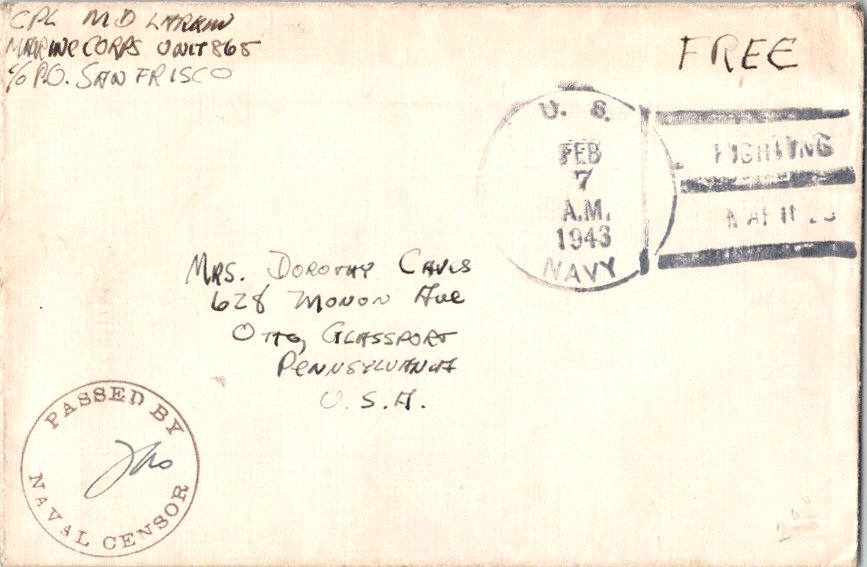 CPL M D LARKIN
MARINE CORPS UNIT 865
c/o P.O. SAN FRISCO
FREE
U. S.
FEB
7
A.M.
1943
NAVY
FIGHTING
MRS. DOROTHY CAVES
628 MONON AVE
OTTO, GLASSPORT
PENNSYLVANIA
U. S. A.
PASSED BY
NAVAL CENSOR